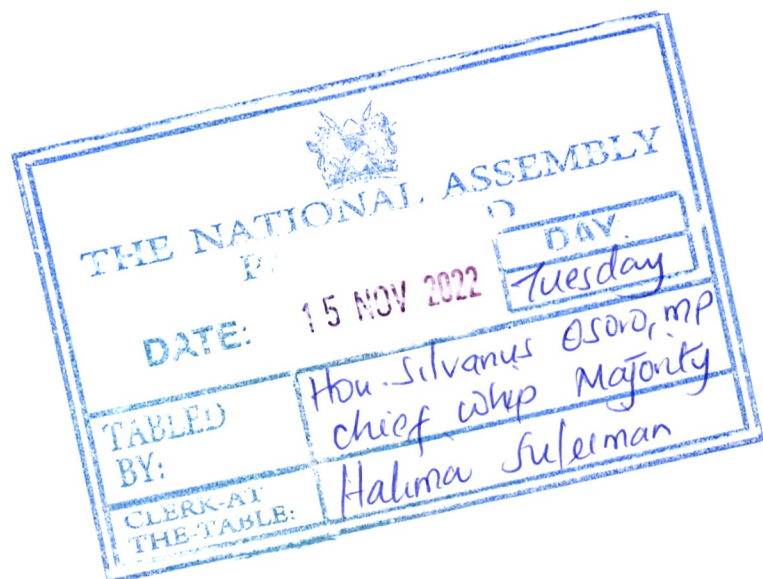 THE NATIONAL ASSEMBLY
DATE: 15 NOV 2022
DAY:
Tuesday
TABLED BY:
Hon. Silvanus Osoro, MP
chief whip Majority
CLERK-AT
THE-TABLE:
Halima Suleiman